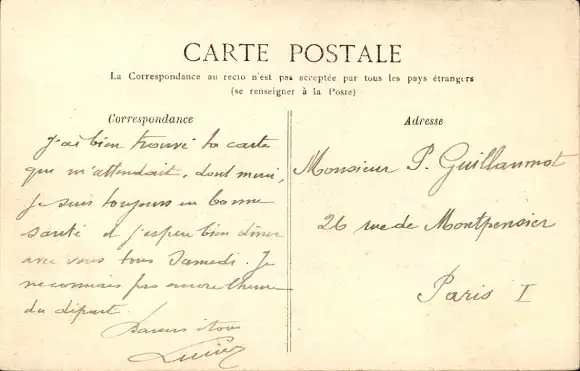 CARTE POSTALE
La Correspondance au recto n'est pas acceptée par tous les pays étrangers
(se renseigner à la Poste)
Correspondance
J'ai bien trouvé ta carte
que m'attendait, dont merci,
je suis toujours en bonne
santé et j'espère bien dîner
avec vous tous Samedi. Je
ne connais pas encore l'heure
du départ.
à tous
Adresse
Monsieur P. Guillaumot
26 rue de Montpensier
Paris I